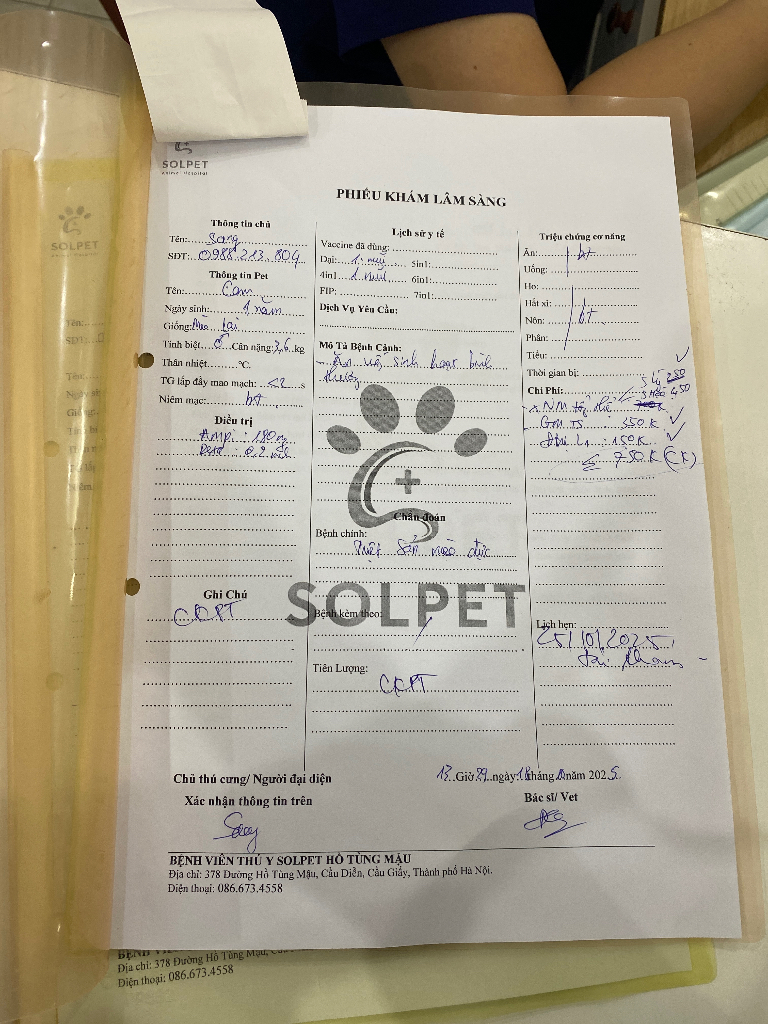 SOLPET
Animal Hospital
SOLPET
PHIẾU KHÁM LÂM SÀNG
Thông tin chủ
Tên: Sang
SĐT: 0988.213.804
Thông tin Pet
Tên: Cam
Ngày sinh: 1 năm
Giống: Mèo lai
Tính biệt ♂ Cân nặng: 3,6 kg
Thân nhiệt °C
TG lấp đầy mao mạch: <2 s
Niêm mạc: bt
Điều trị
Amp: 180
0.2 ml
Ghi Chú
CKPT
Lịch sử y tế
Vaccine đã dùng:
Dại: 1 mũi 5in1:
4in1 1 mũi 6in1:
FIP: 7in1:
Dịch Vụ Yêu Cầu:
Mô Tả Bệnh Cảnh:
- Ăn uống sinh hoạt bình
thường
Chẩn đoán
Bệnh chính:
Triệt sản mèo đực
SOLPET
Bệnh kèm theo:
Tiên Lượng:
CKPT
Triệu chứng cơ năng
Ăn: bt
Uống:
Ho:
Hắt xì:
Nôn: bt
Phân:
Tiểu:
Thời gian bị:
Chi Phí: 450
350K
150K
750K (CK)
Lịch hẹn:
25/10/2025
tái khám
Chủ thú cưng/ Người đại diện
Xác nhận thông tin trên
13 Giờ 29 ngày 18 tháng 10 năm 2025
Bác sĩ/ Vet
BỆNH VIỆN THÚ Y SOLPET HỒ TÙNG MẬU
Địa chỉ: 378 Đường Hồ Tùng Mậu, Cầu Diễn, Cầu Giấy, Thành phố Hà Nội.
Điện thoại: 086.673.4558
Địa chỉ: 378 Đường Hồ Tùng Mậu,
Điện thoại: 086.673.4558